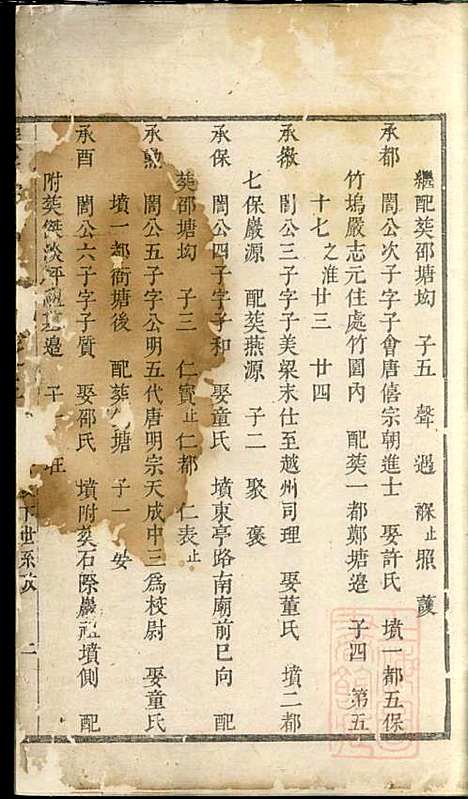 繼配葬邵塘坳　子五　聲　遇　祿止　照　護
承都　閭公次子字子會唐僖宗朝進士　娶許氏　墳一都五保
竹塢嚴志元住處竹園內　配葬一都鄭塘邉　子四　第五
十七之淮　廿三　廿四
承徽　閭公三子字子美梁末仕至越州司理　娶董氏　墳二都
七保嚴源　配葬燕源　子二　聚　褒
承保　閭公四子字子和　娶童氏　墳東亭路南廟前巳向　配
葬邵塘坳　子三　仁實止　仁都　仁表止
承勲　閭公五子字公明五代唐明宗天成中三爲校尉　娶童氏
墳一都衙塘後　配葬　塘　子一　安
承酉　閭公六子字子質　娶邵氏　墳附葬石際嚴祖墳側　配
附葬　淡　邉　子一　旺
下世系
二